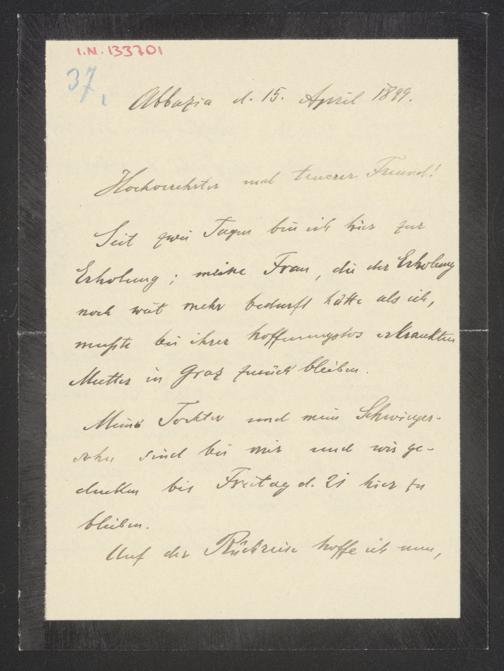 I.N. 133701
37,
Abbazia d. 15. April 1899.
Hochverehrter und teuerer Freund!
Seit zwei Tagen bin ich hier zur
Erholung; meine Frau, die der Erholung
noch weit mehr bedurft hätte als ich,
mußte bei ihrer hoffnungslos erkrankten
Mutter in Graz zurück bleiben.
Meine Tochter und mein Schwieger-
sohn sind bei mir und wir ge-
denken bis Freitag d. 21 hier zu
bleiben.
Auf der Rückreise hoffe ich nun,